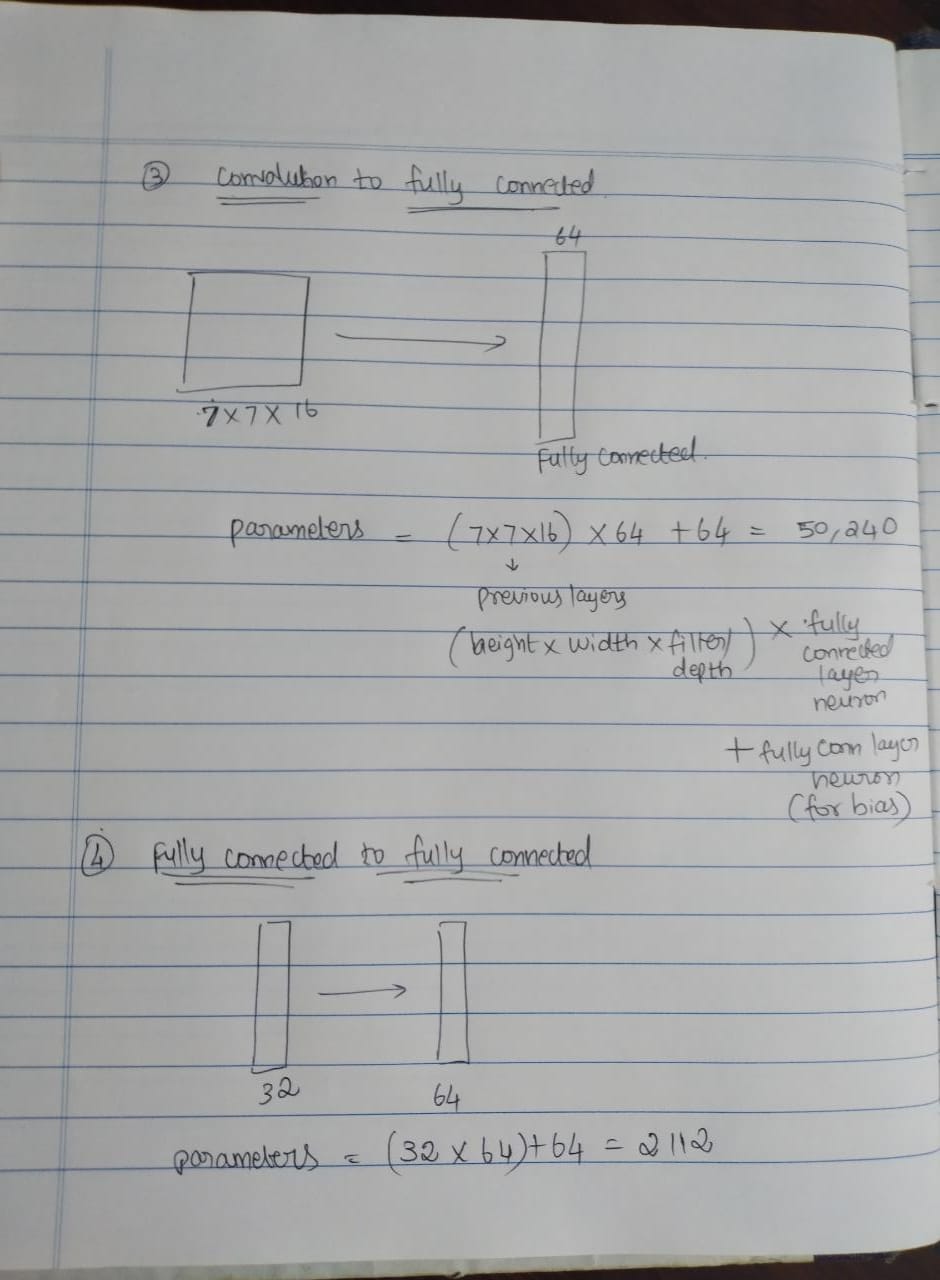 ③ Convolution to fully connected
64
7x7x16
Fully connected.
parameters = (7x7x16) x 64 + 64 = 50,240
↓
previous layers
(height x width x filter/depth) x fully connected layer neuron
+ fully conn layer neuron (for bias)
④ Fully connected to fully connected
32
64
parameters = (32 x 64)+64 = 2112